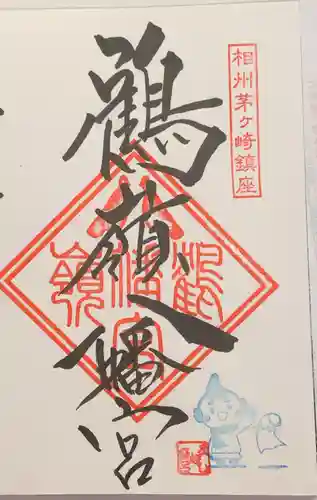 相州茅ヶ崎鎮座
鶴嶺八幡宮
鶴嶺八幡宮